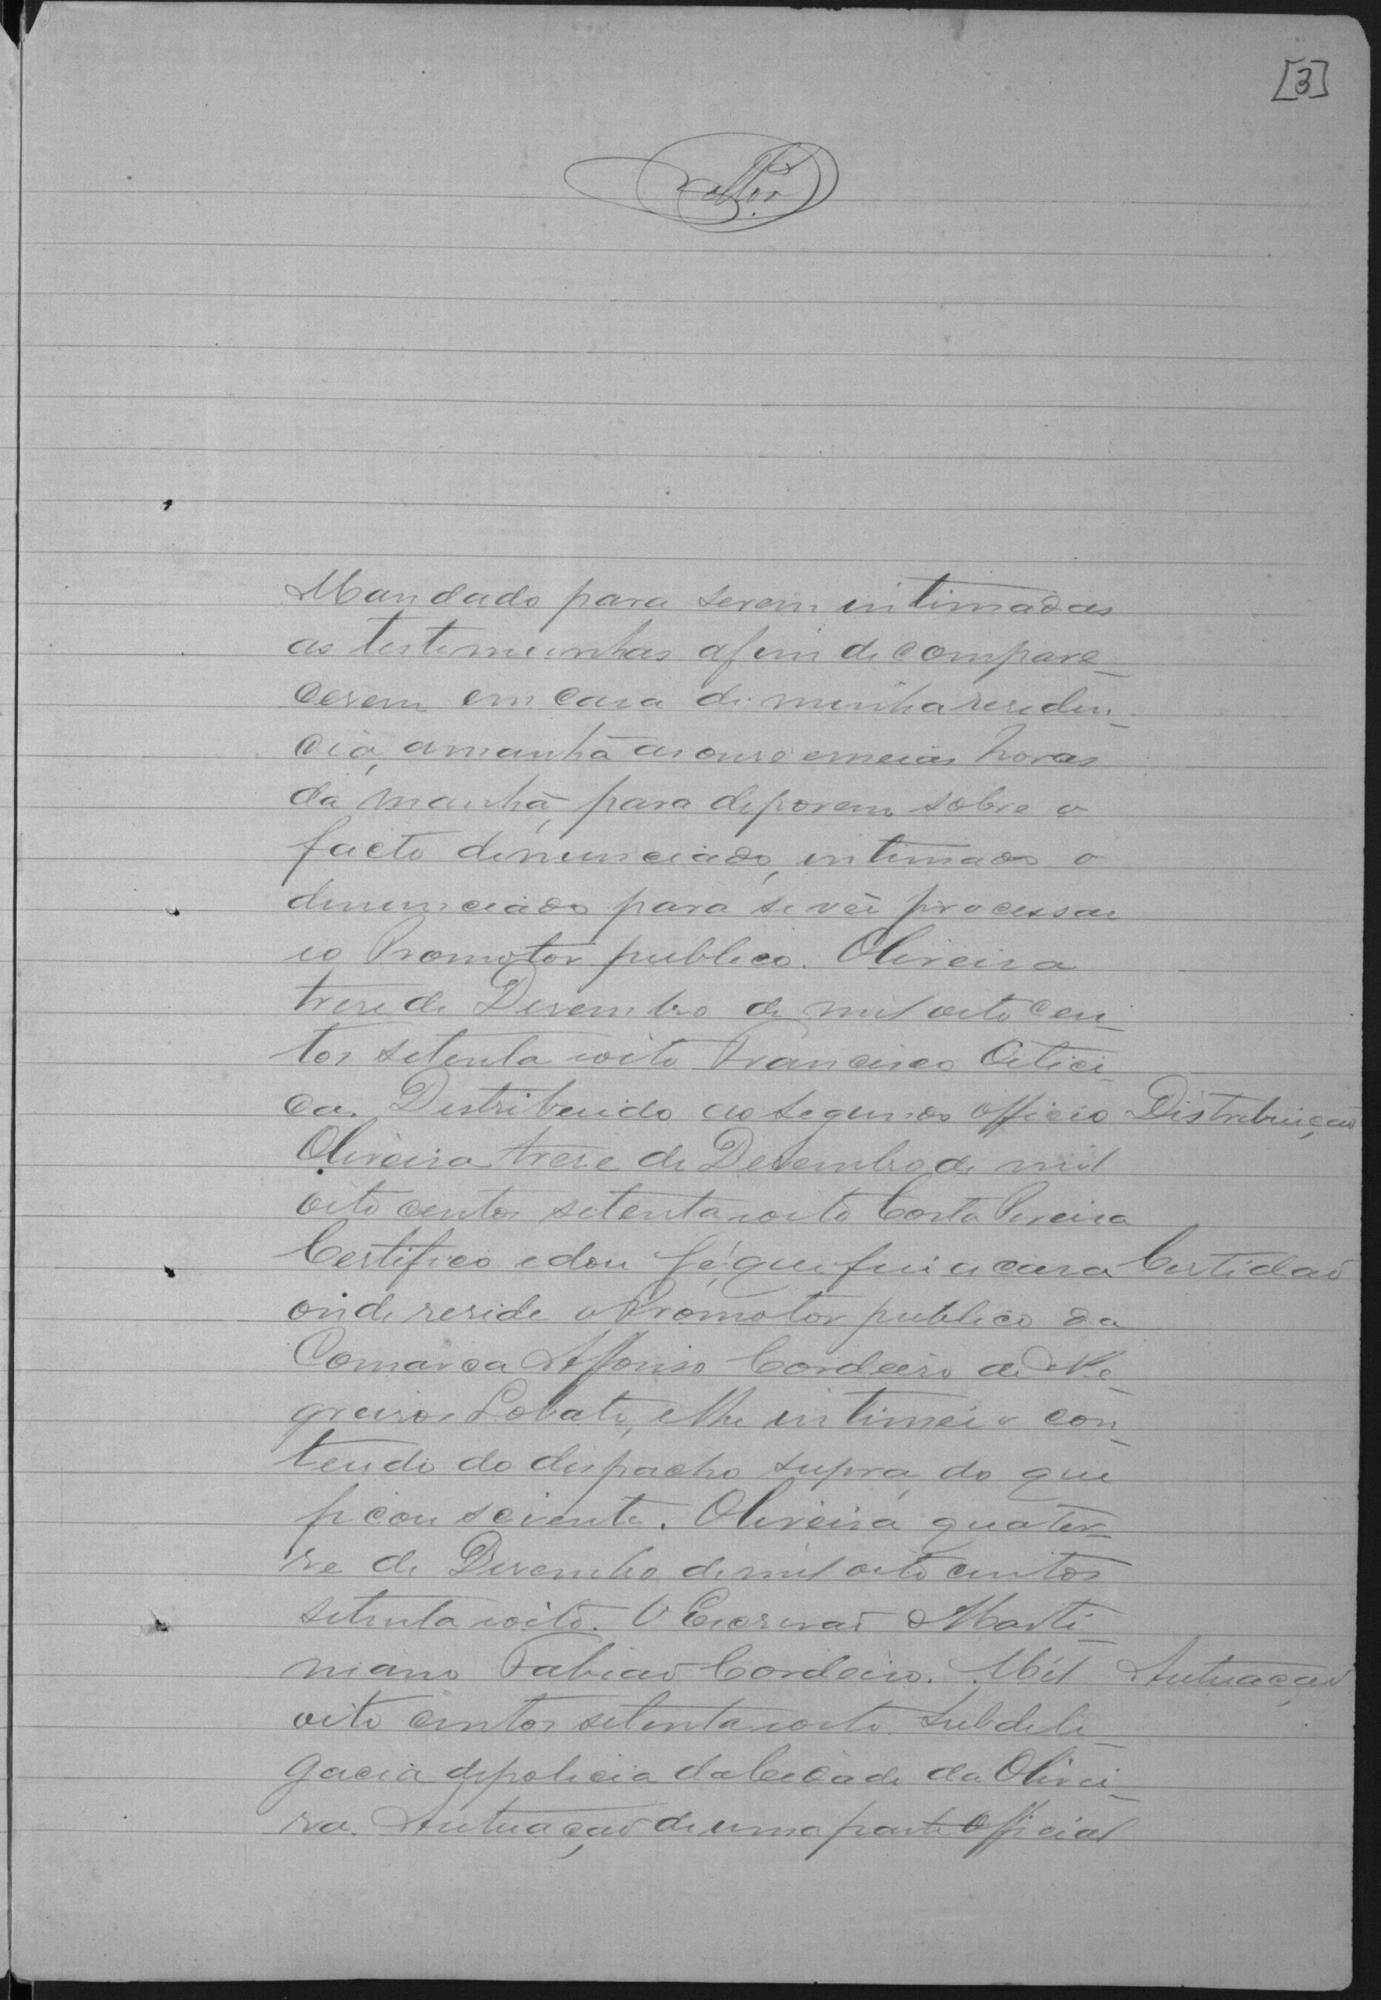 [3]
Mandado para serem intimadas
as testemunhas afim de compare-
cerem em casa de minha residen-
cia, amanhã as onse emeias horas
da manhã, para deporem sobre o
facto denunciado, intimado o
denunciado para se vêr processar
eo Promotor publico. Oliveira
trese de Desembro de mil oito cen-
tos setenta eoito Francisco Oitici-
ca. Destribuido ao segundo officio Distribuição
Oliveira trese de Desembro de mil
oito centos setenta eoito Costa Pereira
Certifico edou fé, que fui a casa Certidaõ
onde reside o Promotor publico da
Comarca Affonso Cordeiro de Ne-
greiros Lobato, elhe intimei o con-
teudo do despacho supra, do que
ficou sciente. Oliveira quator-
se de Desembro de mil oito centos
setenta eoito. O Escrivaõ Marti-
niano Fabiaõ Cordeiro. Mil Autuaçaõ
oito centos setenta eoito. Subdele-
gacia depolicia da Cidade da Olivei-
ra. Autuaçaõ de uma parte Official